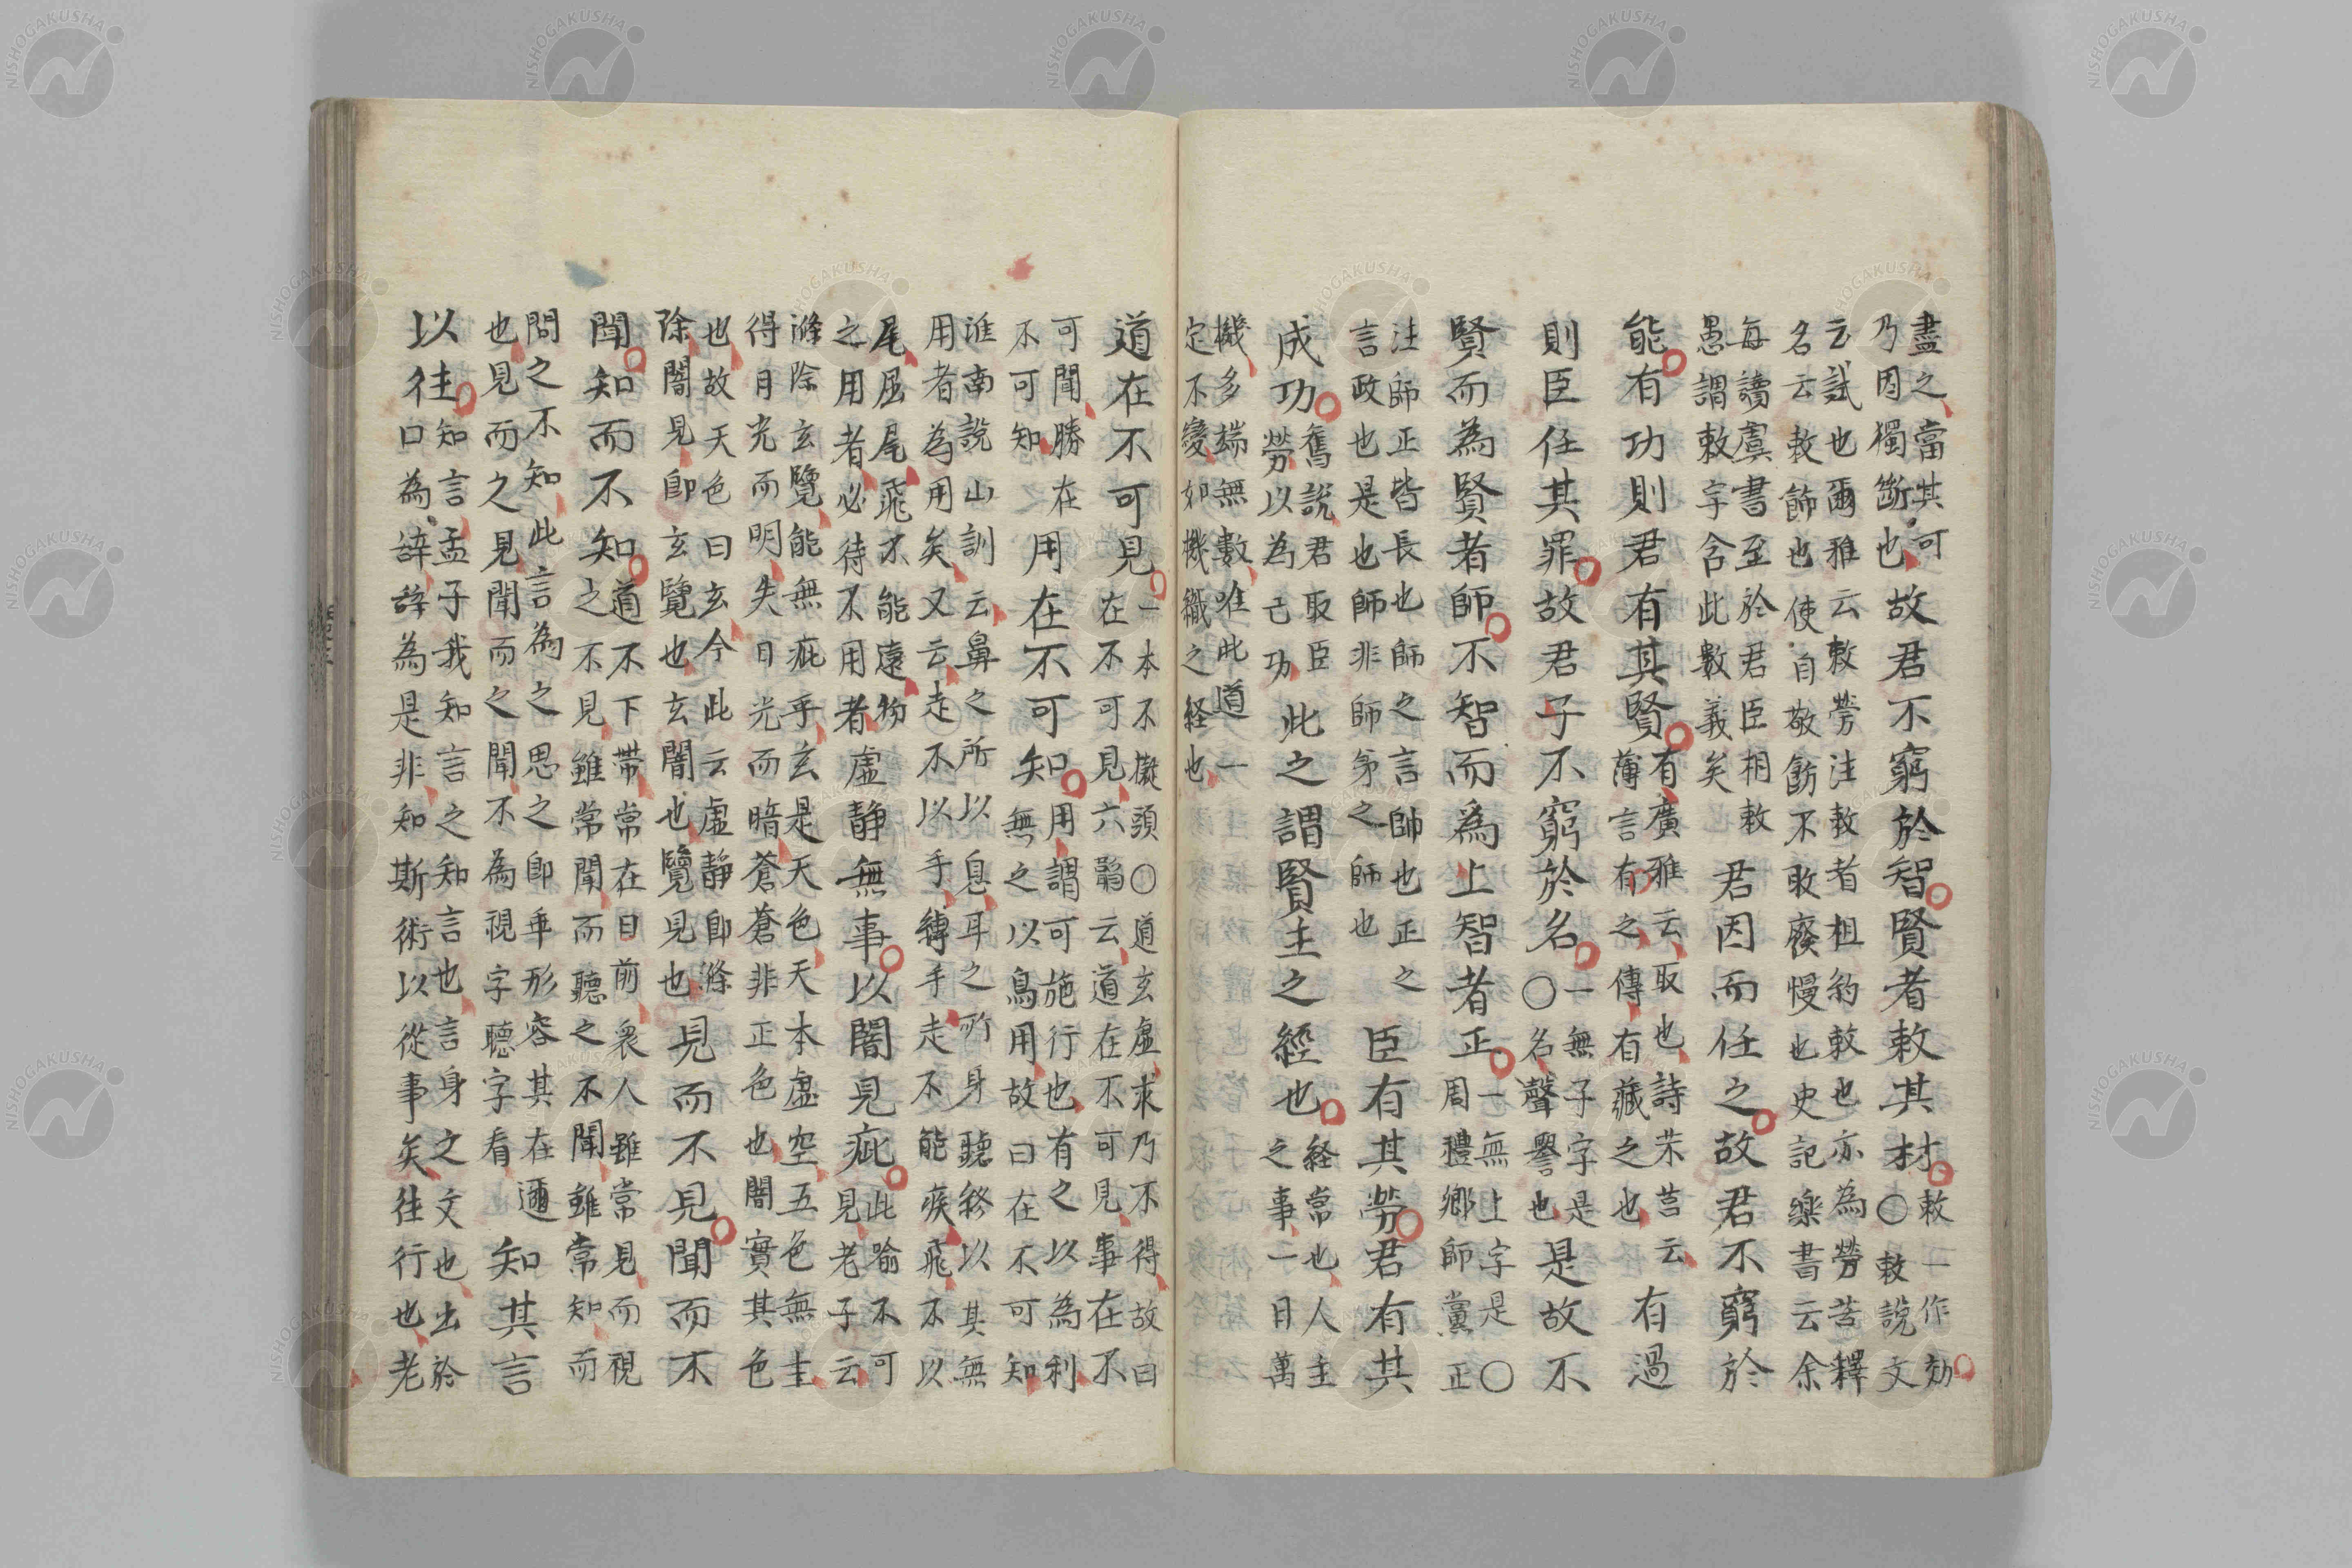 盡之當其可
乃因獨斷也故君不窮於智賢者敕其材敕一作効
○敕說文
云試也爾雅云敕勞注敕者相約敕也亦為勞苦釋
名云敕飾也使自敬飭不敢廢慢也史記樂書云余
每讀虞書至於君臣相敕
愚謂敕字含此數義矣君因而任之故君不窮於
能有功則君有其賢有廣雅云取也詩芣苢云
薄言有之傳有藏之也有過
則臣任其罪故君子不窮於名一無子字是
○名聲譽也是故不
賢而為賢者師不智而為上智者正一無上字是○
周禮鄉師黨正
注師正皆長也師之言帥也正之
言政也是也師非師弟之師也臣有其勞君有其
成功舊說君取臣
勞以為己功此之謂賢主之經也経常也人主
之事一日萬
機多端無數唯此道一
定不變如機織之経也
道在不可見一本不擬頭○道玄虛求乃不得故曰
在不可見六韜云道在不可見事在不
可聞勝在
不可知用在不可知用謂可施行也有之以為利
無之以為用故曰在不可知
淮南說山訓云鼻之所以息耳之所身聽終以其無
用者為用矣又云走不以手縛手走不能疾飛不以
尾屈尾飛不能遠物
之用者必待不用者虛靜無事以闇見疵此喻不可
見老子云
滌除玄覽能無疵乎玄是天色天本虛空五色無主
得月光而明失日光而暗蒼蒼非正色也闇實其色
也故天色曰玄玄今此云虛靜即滌
除闇見即玄覽也玄闇也覽見也見而不見聞而不
聞知而不知道不下帶常在目前衆人雖常見而視
之不見雖常聞而聽之不聞雖常知而
問之不知此言為之思之即無形容其在邇
也見而之見聞而之聞不為視字聽字看知其言
以往知言孟子我知言之知言也言身之文也出於
口為辞辞為是非知斯術以從事矣往行也老